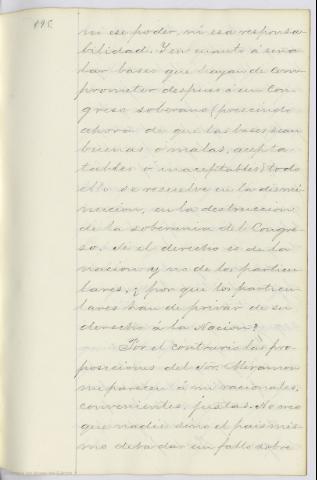 ni ese poder, ni esa responsa-
bilidad. Y en cuanto á seña-
lar bases que hayan de com-
prometer despues á un Con-
greso soberano (prescindo
ahora de que las bases sean
buenas ó malas, acepta-
tables ó inaceptables) todo
ello se resuelve en la dismi-
nucion, en la destruccion
de la soberanía del Congre-
so. Si el derecho es de la
nacion y no de los particu-
lares, ¿por qué los particu-
lares han de privar de su
derecho á la Nacion?
Por el contrario las pro-
posiciones del Sor. Miramon
me parecen á mi racionales,
convenientes, justas. No creo
que nadie sino el pais mis-
mo deba dar un fallo sobre